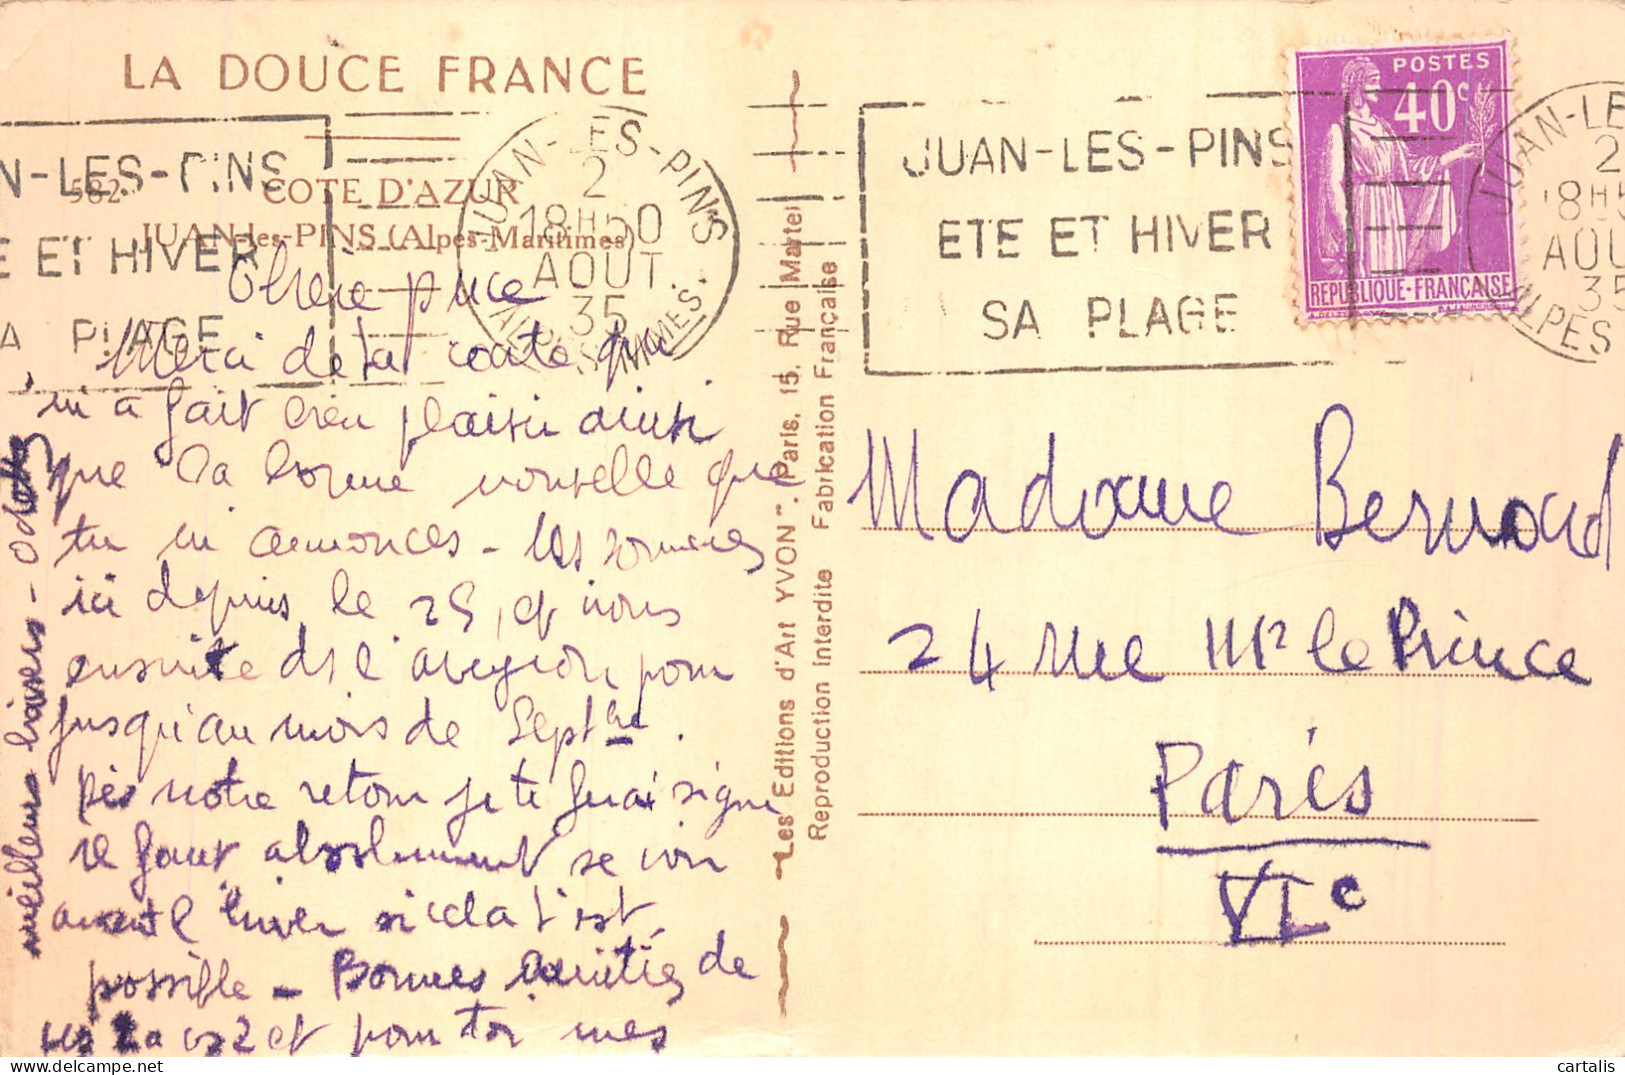 LA DOUCE FRANCE
582. COTE D'AZUR
JUAN-les-PINS (Alpes-Maritimes)
N-LES-PINS
E ET HIVER
A PLAGE
JUAN-LES-PINS
2
18H50
AOUT
35
ALPES MMES.
JUAN-LES-PINS
ETE ET HIVER
SA PLAGE
POSTES
40c
REPUBLIQUE-FRANÇAISE
JUAN-LE
2
18H5
AOU
35
ALPES
Chère puce
Merci de ta carte qui
m'a fait bien plaisir ainsi
que la bonne nouvelle que
tu m'annonces - Nous sommes
ici depuis le 25, et irons
ensuite ds l'aveyron pour
jusqu'au mois de Septbre.
Dès notre retour je te ferai signe
il faut absolument se voir
avant l'hiver si cela t'est
possible - Bonnes amitiés de
et pour toi mes
meilleurs baisers - Odette
Les Editions d'Art YVON". Paris, 15, Rue Martel
Reproduction Interdite Fabrication Française
Madame Bernard
24 rue Mr le Prince
Paris
VIe
cartalis